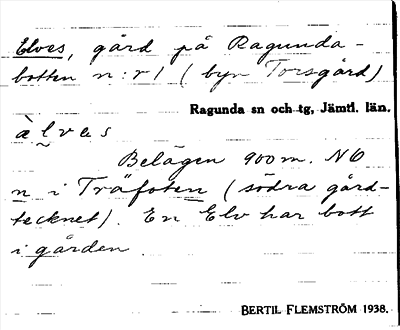 Elves, gård på Ragunda-
botten n:r 1 (byn Torsgård)
Ragunda sn och tg, Jämtl. län.
àlvas
Belägen 900 m. NO
n i Träfoten (södra gård-
tecknet). En Elv har bott
i gården.
BERTIL FLEMSTRÖM 1938.